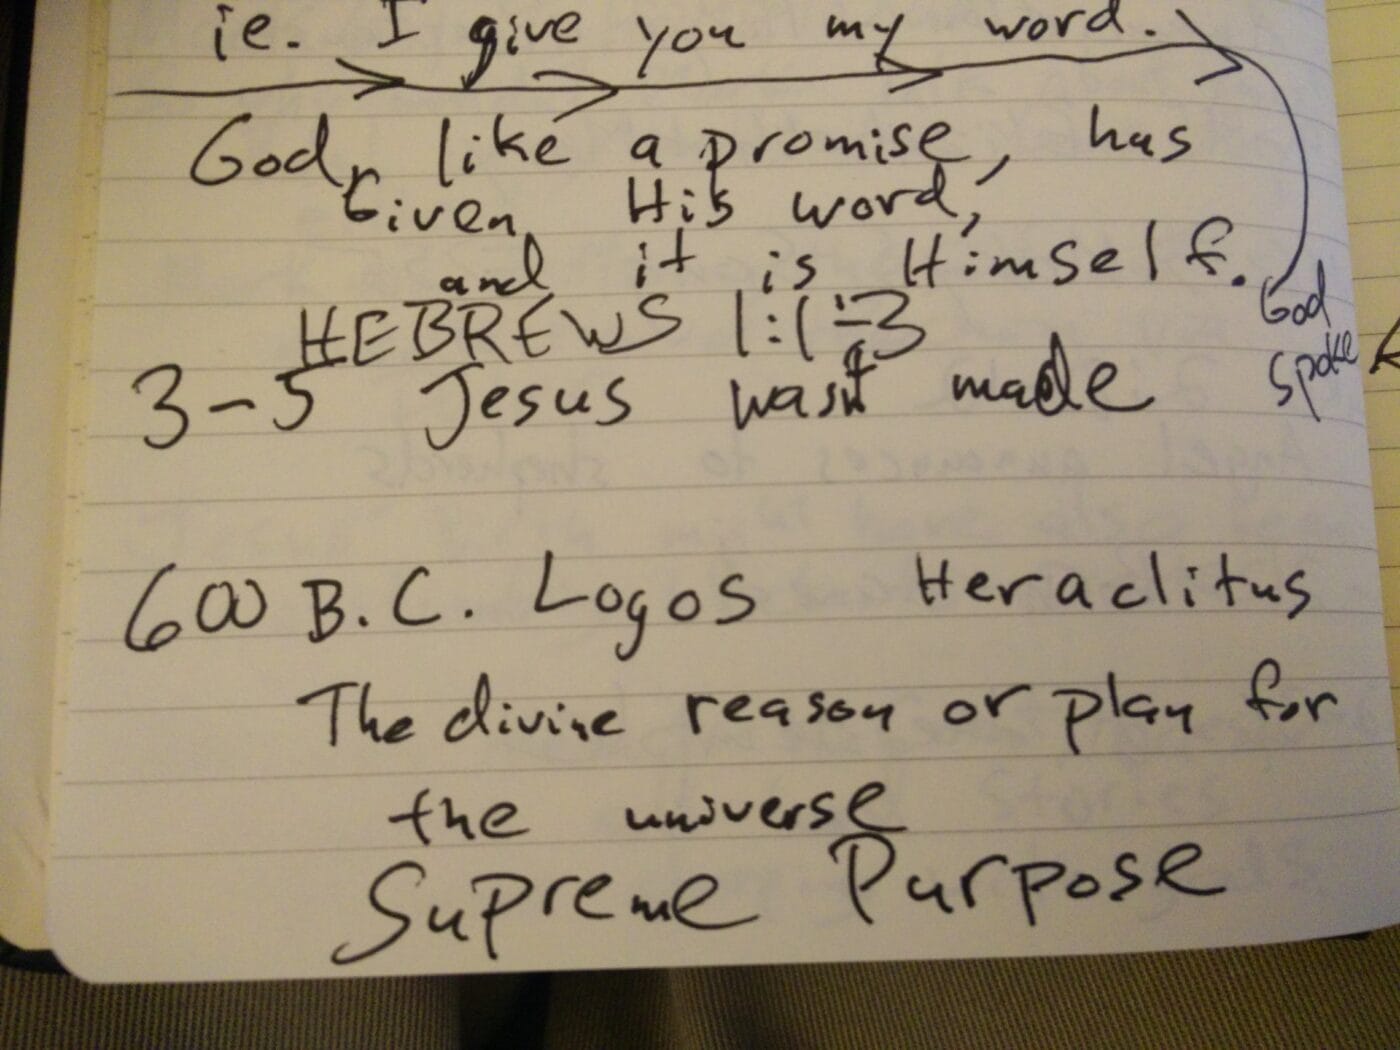 ie. I give you my word.
God, like a promise, has
Given His word,
and it is Himself.
God
spoke
HEBREWS 1:1-3
3-5 Jesus wasn't made
600 B.C. Logos Heraclitus
The divine reason or plan for
the universe
Supreme Purpose